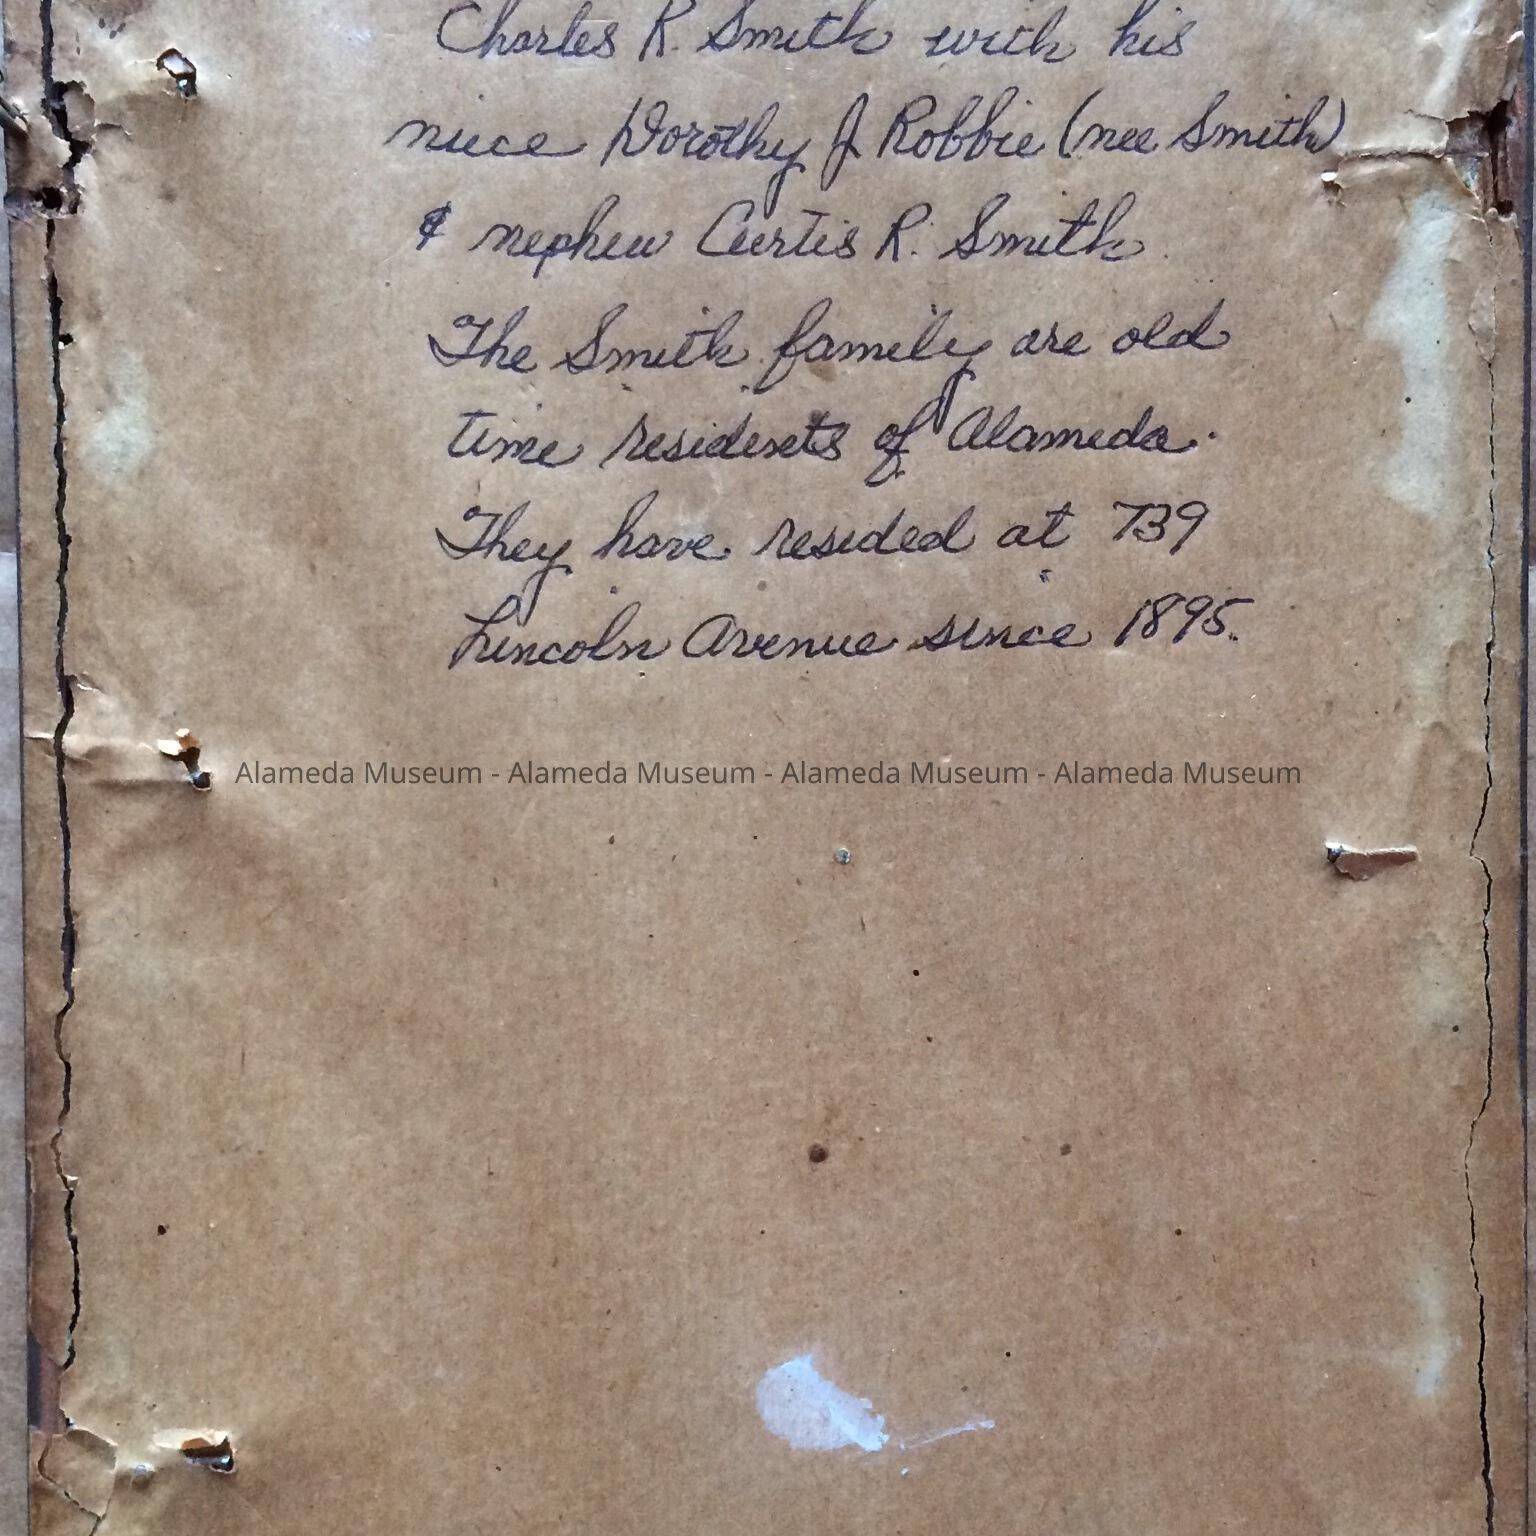 Charles R. Smith with his
niece Dorothy J Robbie (nee Smith)
& nephew Curtis R. Smith
The Smith family are old
time residents of Alameda.
They have resided at 739
Lincoln Avenue since 1895.
Alameda Museum - Alameda Museum - Alameda Museum - Alameda Museum